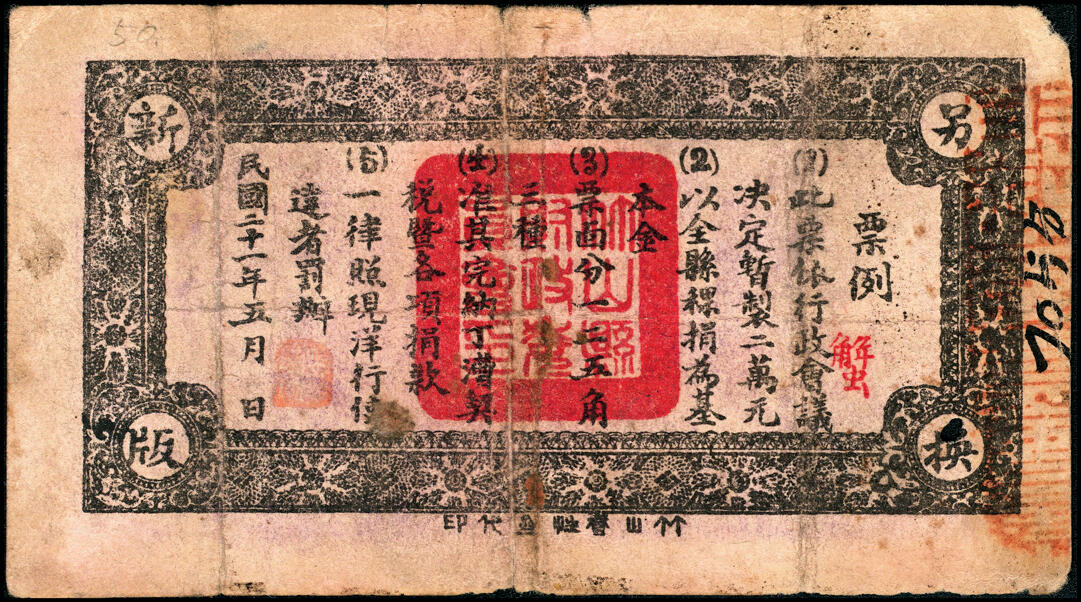 50
另換
新版
票例
(1)此票依行政會議
決定暫製二萬元
(2)以全縣稞捐為基
本金
(3)票面分一二五角
三種
(4)准其完納丁漕契
稅暨各項捐款
(5)一律照現洋行使
違者罰辦
民國二十一年五月 日
竹山縣財政
解出
竹山
代印